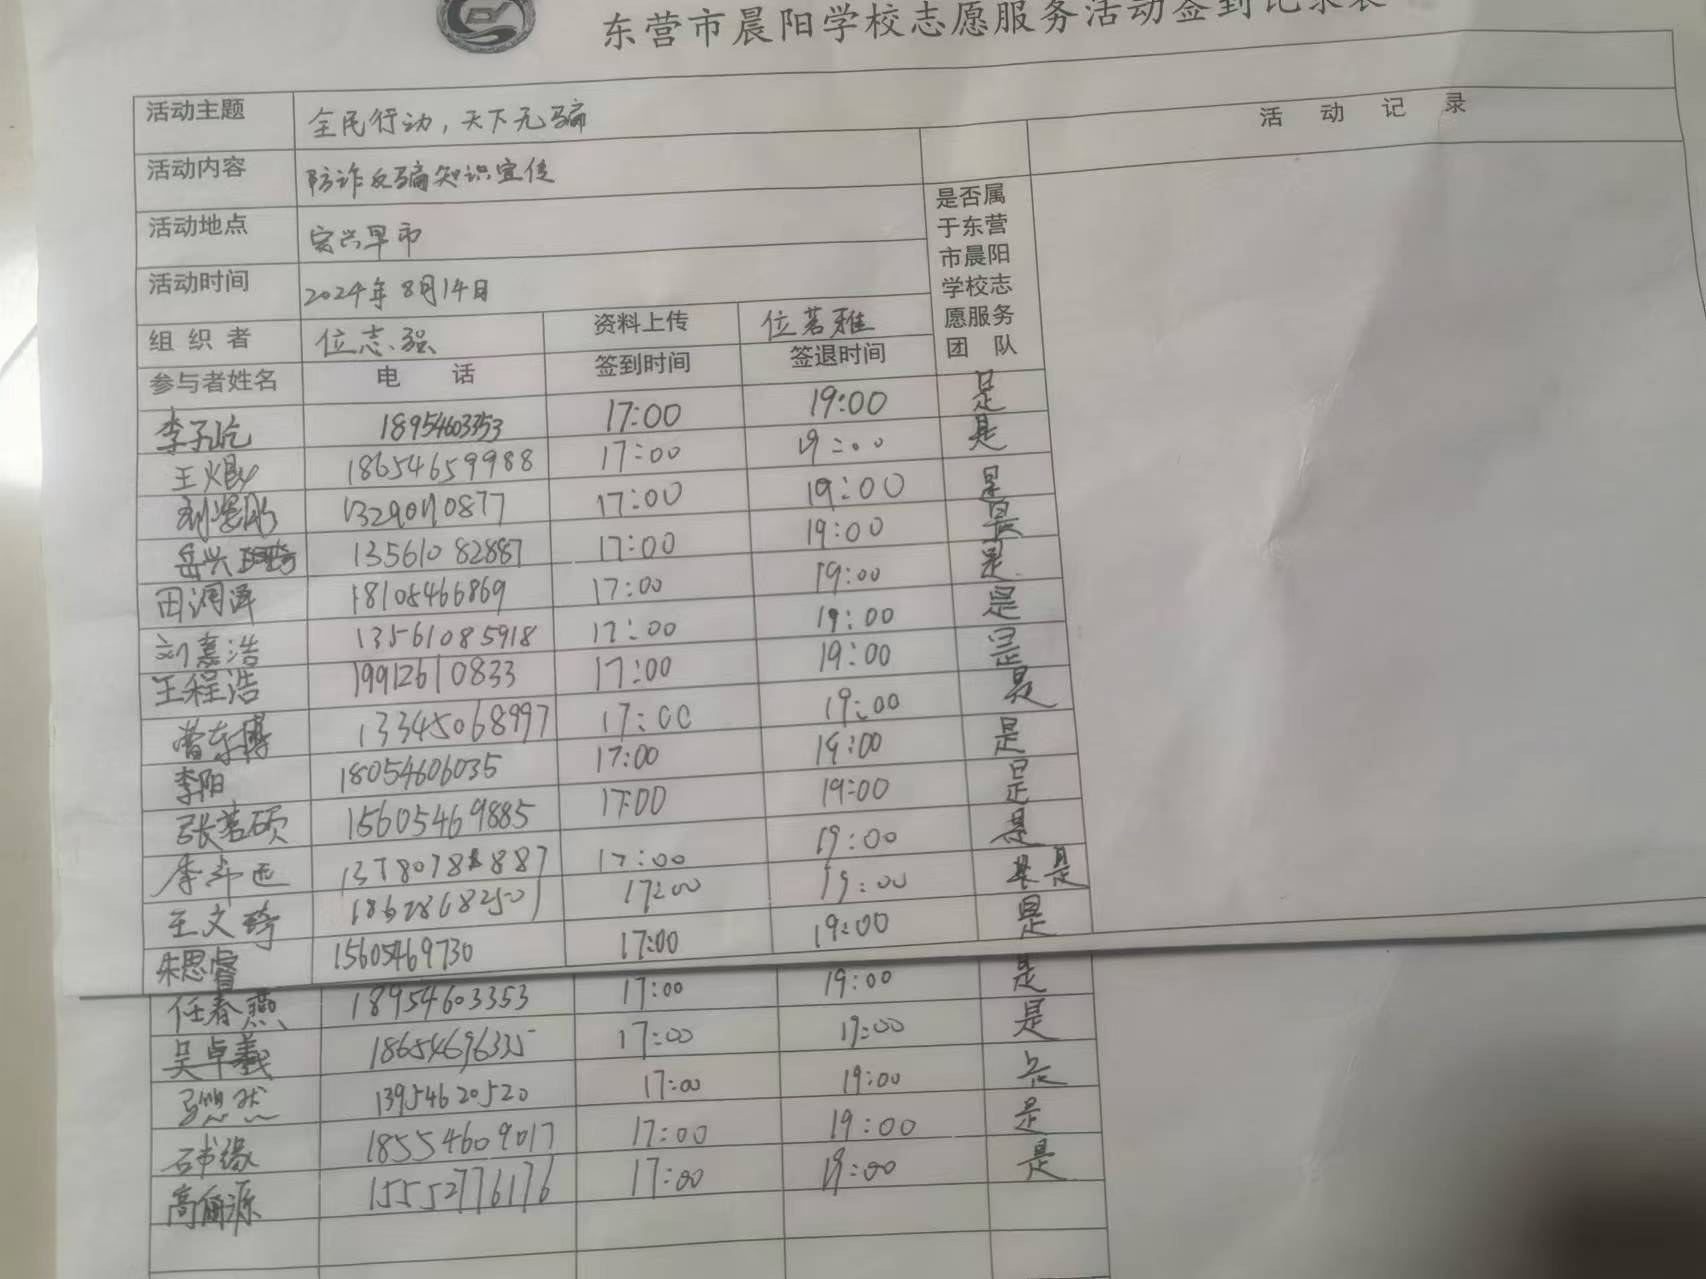 东营市晨阳学校志愿服务活动签到记录表
活动主题 全民行动，天下无骗
活动记录
活动内容 防诈反骗知识宣传
活动地点 宾兴早市
是否属于东营市晨阳学校志愿服务团队
活动时间 2024年8月14日
组织者 位志强 资料上传 位茗雅
参与者姓名 电话 签到时间 签退时间
李子屹 18954603353 17:00 19:00 是
王 18654659988 17:00 19:00 是
17:00 19:00 是
岳兴 13561082887 17:00 19:00 是
田润泽 18105466869 17:00 19:00 是
刘嘉浩 13561085918 17:00 19:00 是
王程浩 19912610833 17:00 19:00 是
曹东博 13345068997 17:00 19:00 是
李阳 18054606035 17:00 19:00 是
张茗硕 15605469885 17:00 19:00 是
17:00 19:00 是
王文琦 17:00 19:00 是
朱思睿 15605469730 17:00 19:00 是
任春燕 18954603353 17:00 19:00 是
吴卓羲 18654696335 17:00 19:00 是
悠然 13954620520 17:00 19:00 是
石书缘 18554609017 17:00 19:00 是
高俪源 15552776176 17:00 19:00 是